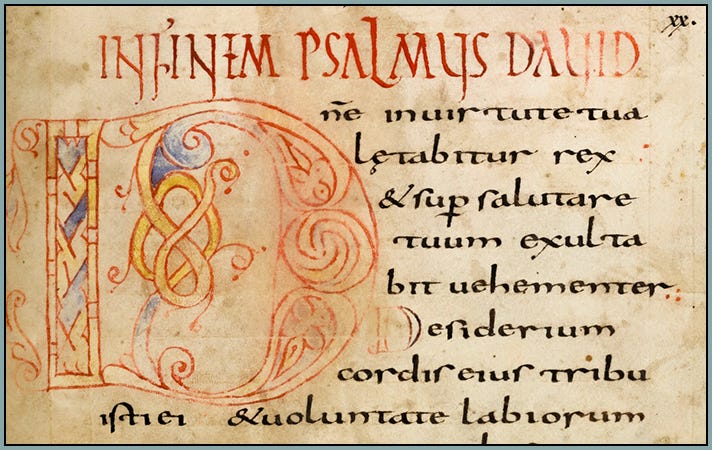 xx.
IN FINEM PSALMUS DAUID
Dnē inuirtute tua
lętabitur rex
& sup salutare
tuum exulta
bit uehementer
Desiderium
cordis eius tribu
isti ei & uoluntate labiorum